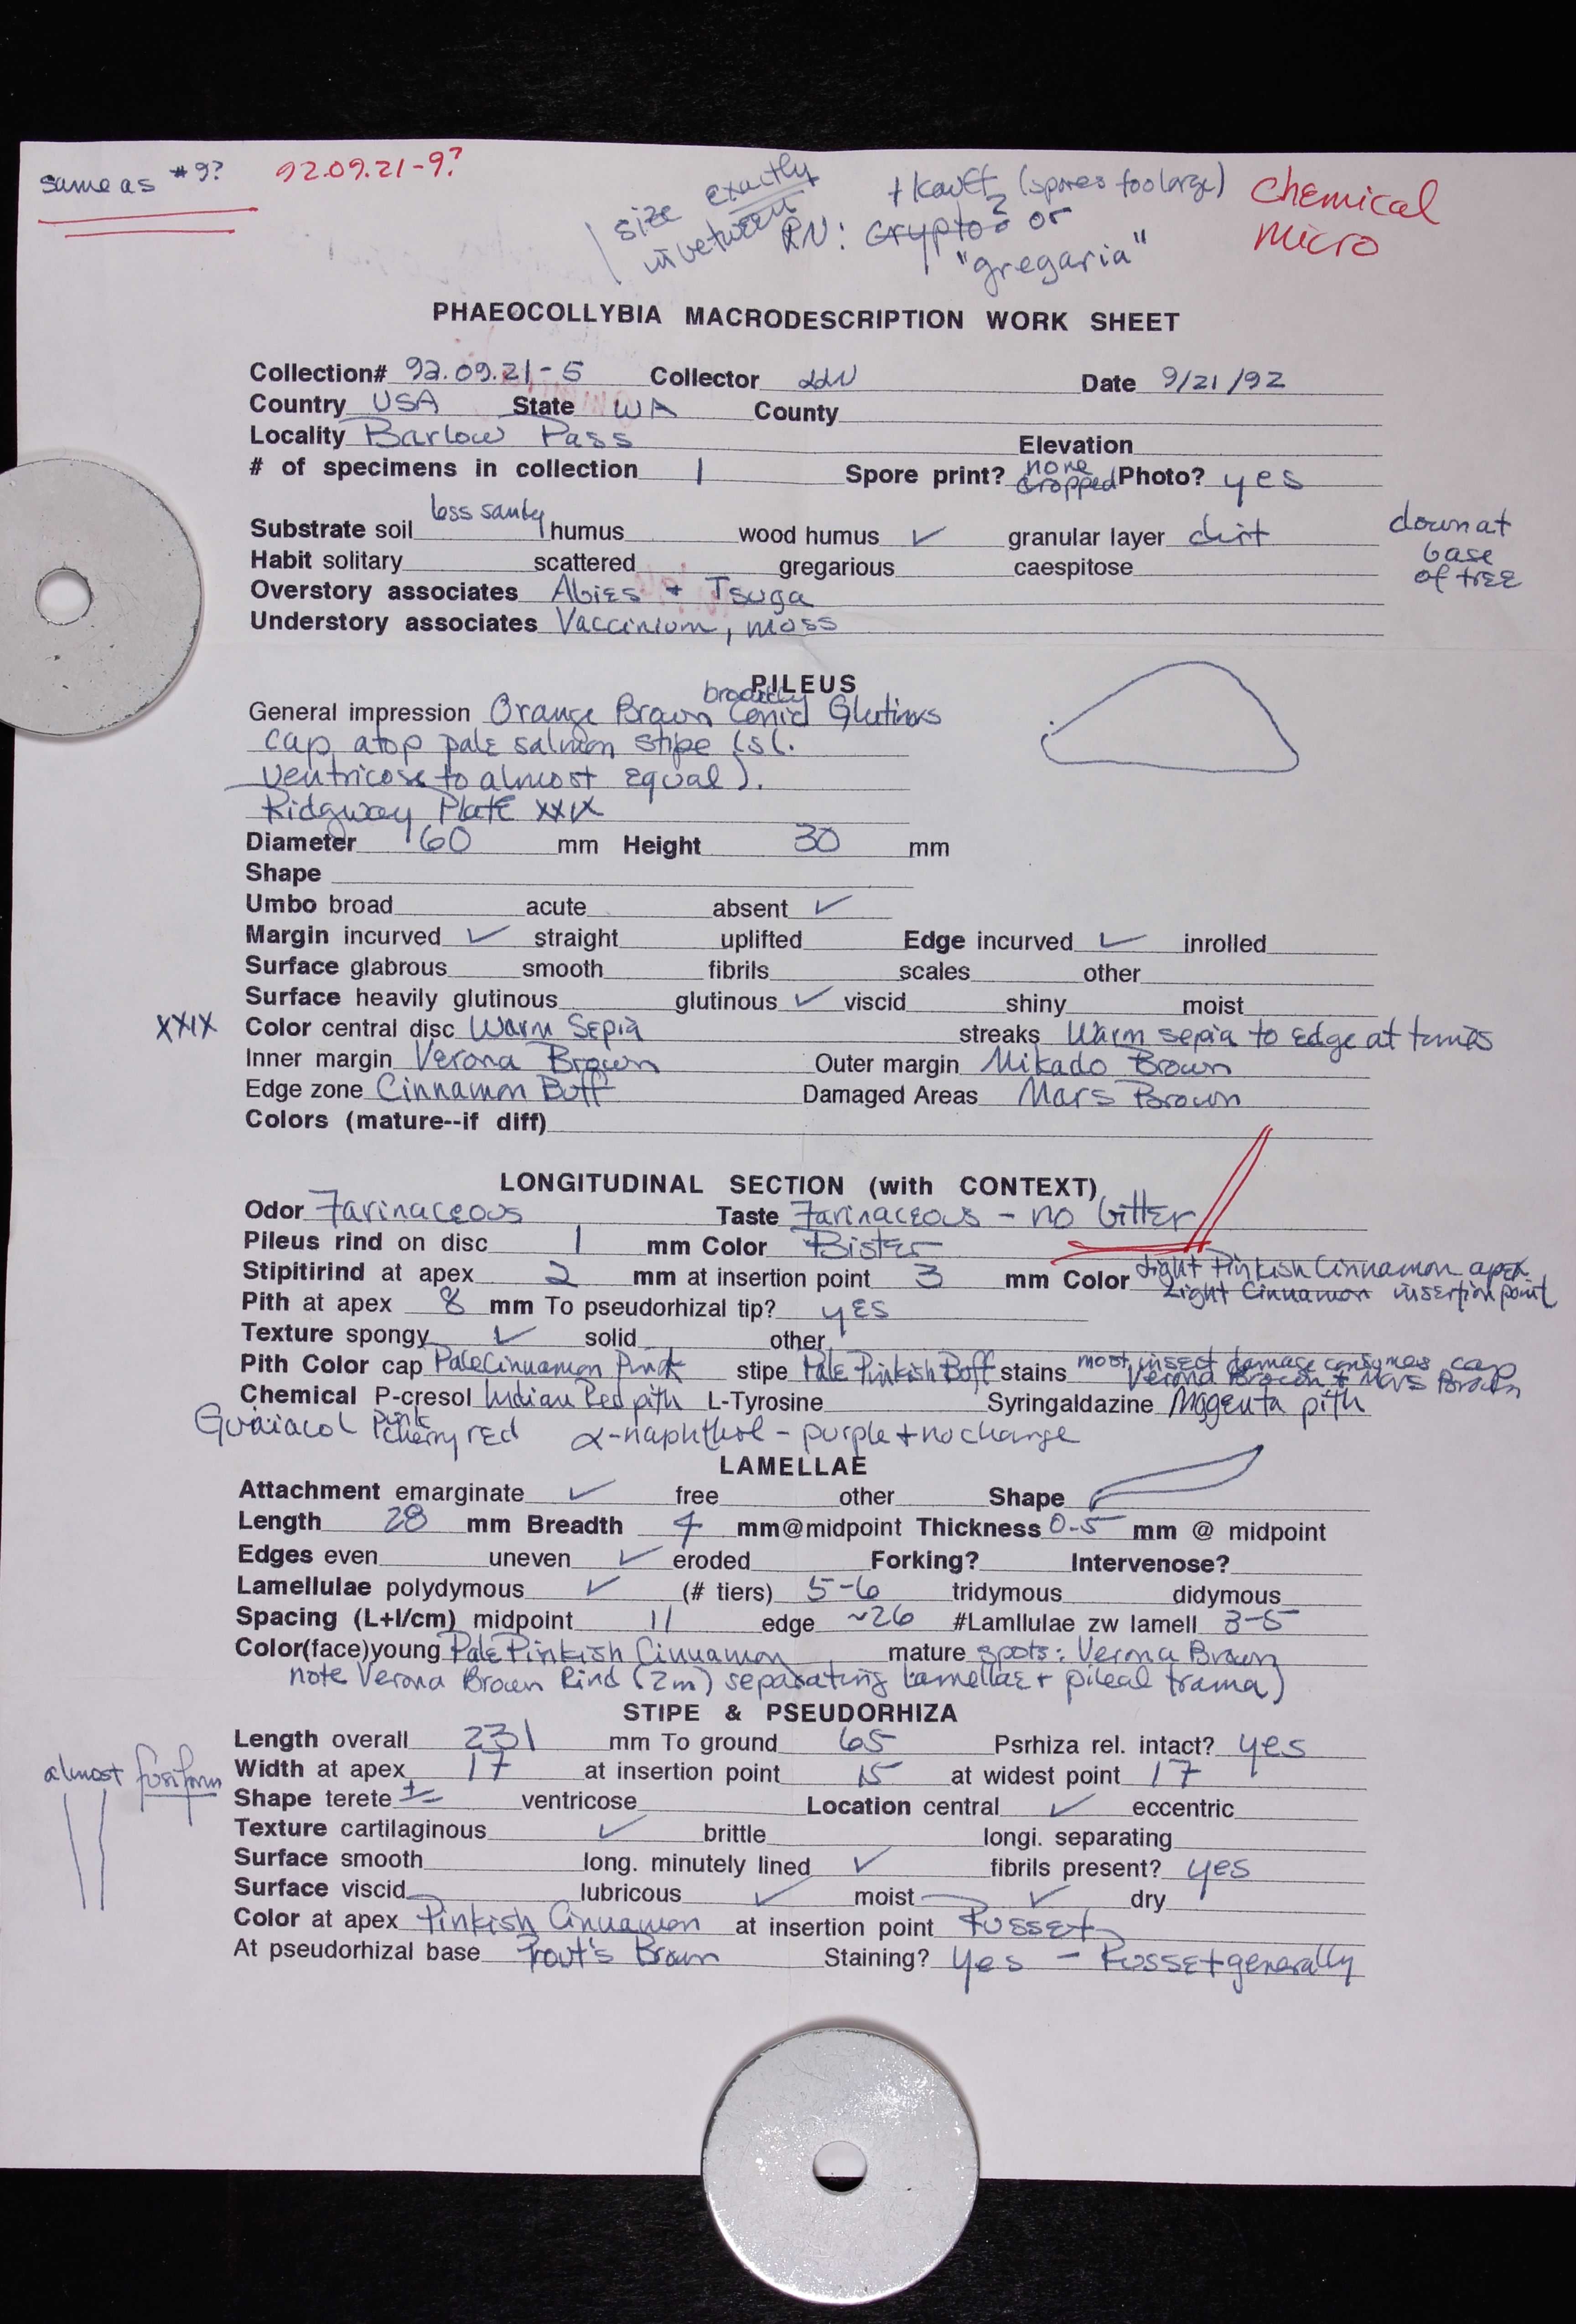 same as #9? 92.09.21-9?
size exactly
inbetween
+ Kauff (spores too large)
RN: Crypto? or
"gregaria"
Chemical
Micro
PHAEOCOLLYBIA MACRODESCRIPTION WORK SHEET
Collection# 92.09.21-5 Collector LLN Date 9/21/92
Country USA State WA County
Locality Barlow Pass Elevation
# of specimens in collection 1 Spore print? none dropped Photo? yes
Substrate soil less sandy humus wood humus ✓ granular layer dirt
down at
base
of tree
Habit solitary scattered gregarious caespitose
Overstory associates Abies + Tsuga
Understory associates Vaccinium, moss
PILEUS
General impression Orange Brown broadly Conic Glutinous
cap atop pale salmon stipe (sl.
ventricose to almost equal).
Ridgway Plate XXIX
Diameter 60 mm Height 30 mm
Shape
Umbo broad acute absent ✓
Margin incurved ✓ straight uplifted Edge incurved ✓ inrolled
Surface glabrous smooth fibrils scales other
Surface heavily glutinous glutinous ✓ viscid shiny moist
XXIX Color central disc Warm Sepia streaks Warm sepia to edge at times
Inner margin Verona Brown Outer margin Mikado Brown
Edge zone Cinnamon Buff Damaged Areas Mars Brown
Colors (mature--if diff)
LONGITUDINAL SECTION (with CONTEXT)
Odor Farinaceous Taste Farinaceous - no bitter
Pileus rind on disc 1 mm Color Bister
Stipitirind at apex 2 mm at insertion point 3 mm Color Light Pinkish Cinnamon apex
Light Cinnamon insertion point
Pith at apex 8 mm To pseudorhizal tip? yes
Texture spongy ✓ solid other
Pith Color cap Pale Cinnamon Pink stipe Pale Pinkish Buff stains most insect damage consumes cap
Verona Brown + Mars Brown
Chemical P-cresol Indian Red pith L-Tyrosine Syringaldazine Magenta pith
Guaiacol pink cherry red α-naphthol - purple + no change
LAMELLAE
Attachment emarginate ✓ free other Shape
Length 28 mm Breadth 4 mm@midpoint Thickness 0.5 mm @ midpoint
Edges even uneven ✓ eroded Forking? Intervenose?
Lamellulae polydymous ✓ (# tiers) 5-6 tridymous didymous
Spacing (L+l/cm) midpoint 11 edge ~26 #Lamllulae zw lamell 3-5
Color(face)young Pale Pinkish Cinnamon mature spots: Verona Brown
note Verona Brown Rind (2m) separating Lamellae + pileal trama)
STIPE & PSEUDORHIZA
Length overall 231 mm To ground 65 Psrhiza rel. intact? yes
Width at apex 17 at insertion point 15 at widest point 17
almost fusiform
Shape terete ± ventricose Location central ✓ eccentric
Texture cartilaginous ✓ brittle longi. separating
Surface smooth long. minutely lined ✓ fibrils present? yes
Surface viscid lubricous ✓ moist ✓ dry
Color at apex Pinkish Cinnamon at insertion point Russet
At pseudorhizal base Prout's Brown Staining? Yes - Russet generally